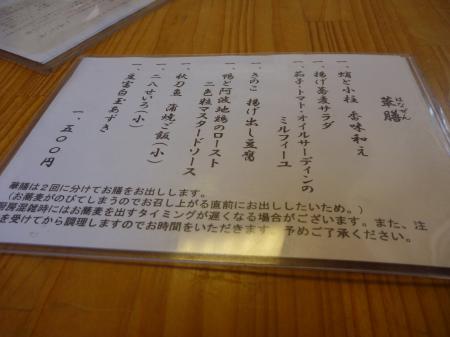 華膳
はなぜん
一、蛸と小柱 香味和え
一、揚げ蕎麦サラダ
一、茄子・トマト・オイルサーディンの
ミルフィーユ
一、きのこ 揚げ出し豆腐
一、鴨と阿波地鶏のロースト
二色粒マスタードソース
一、秋刀魚 蒲焼ご飯(小)
一、二八せいろ(小)
一、豆富白玉あずき
一、五〇〇円
華膳は2回に分けてお膳をお出しします。
(お蕎麦がのびてしまうのでお召し上がる直前にお出ししたいため。)
厨房混雑時にはお蕎麦を出すタイミングが遅くなる場合がございます。また、注
を受けてから調理しますのでお時間をいただきます。予めご了承ください。